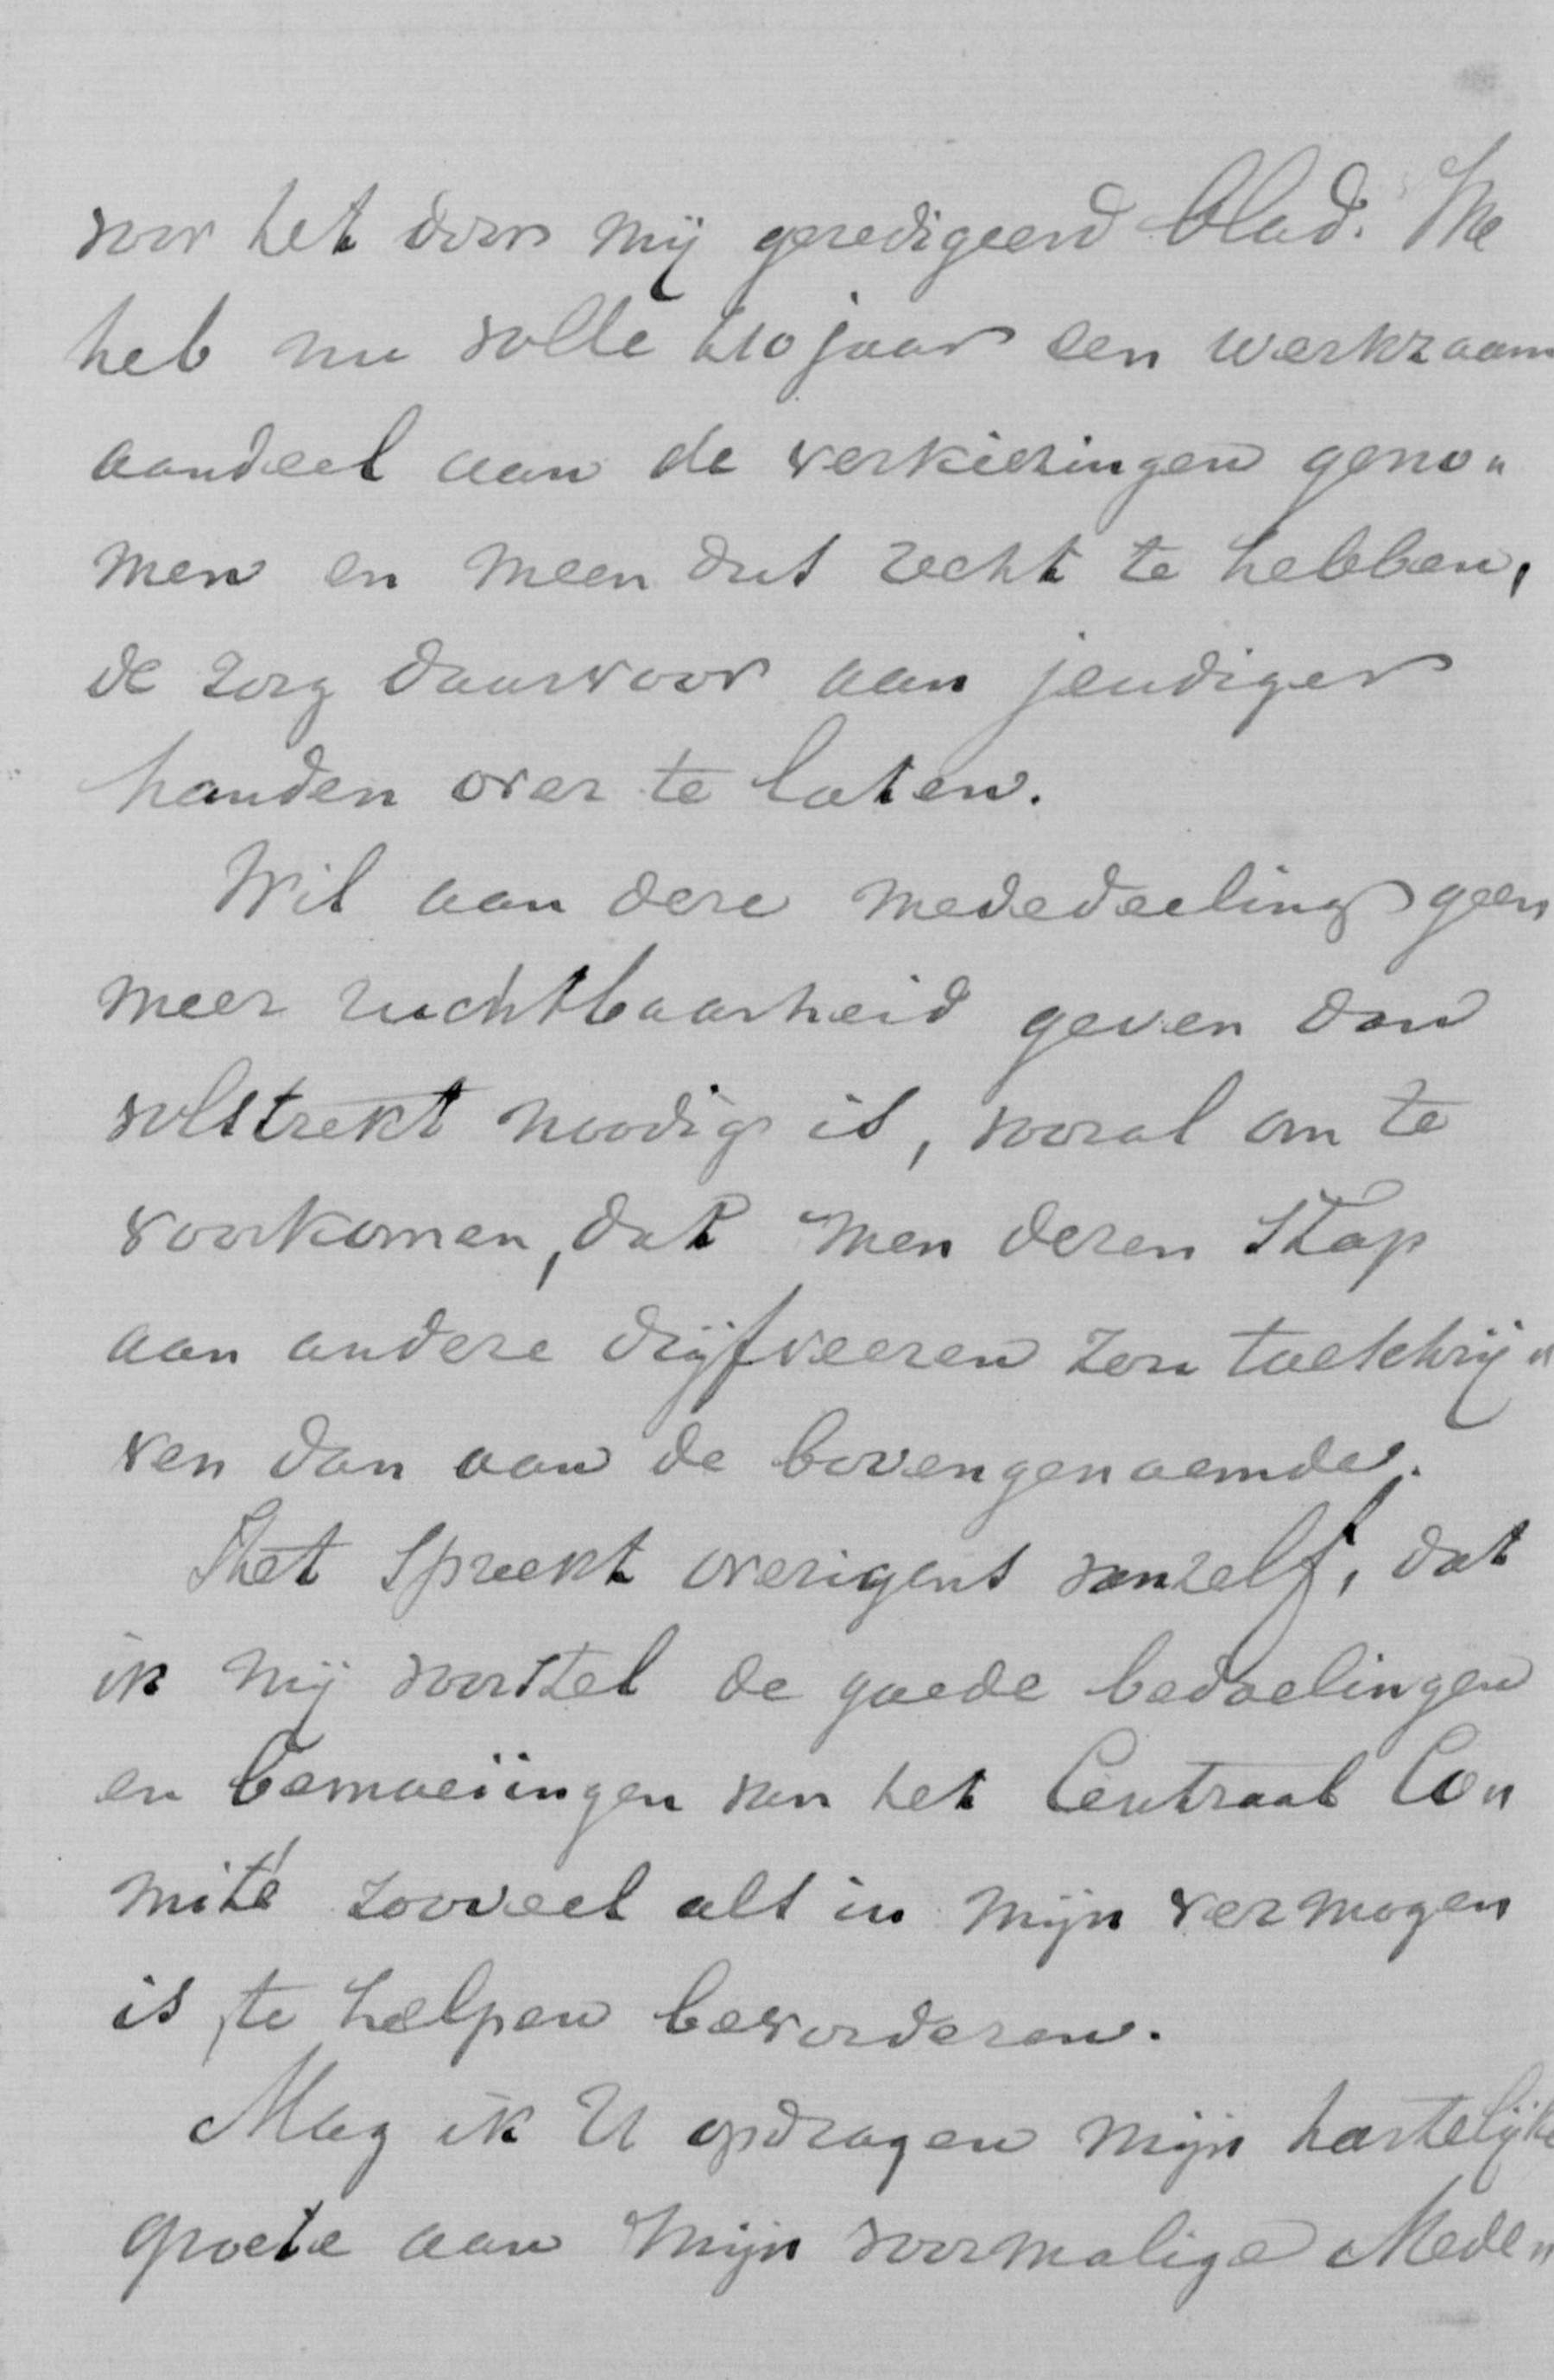 voor het door mij geredigeerd blad. Ik
heb nu volle 40 jaar een werkzaam
aandeel aan de verkiezingen geno„
men en meen dus recht te hebben,
de zorg daarvoor aan jeudiger
handen over te laten.
Wil aan deze mededeeling geen
meer ruchtbaarheid geven dan
volstrekt noodig is, vooral om te
voorkomen, dat men dezen stap
aan andere drijfveeren zou toeschrij„
ven dan aan de bovengenoemde.
Het spreekt overigens vanzelf, dat
ik mij voorstel de goede bedoelingen
en bemoeiingen van het Centraal Co„
mité zooveel als in mijn vermogen
is, te helpen bevorderen.
Mag ik U opdragen mijn hartelijke
groete aan mijn voormalige Mede„